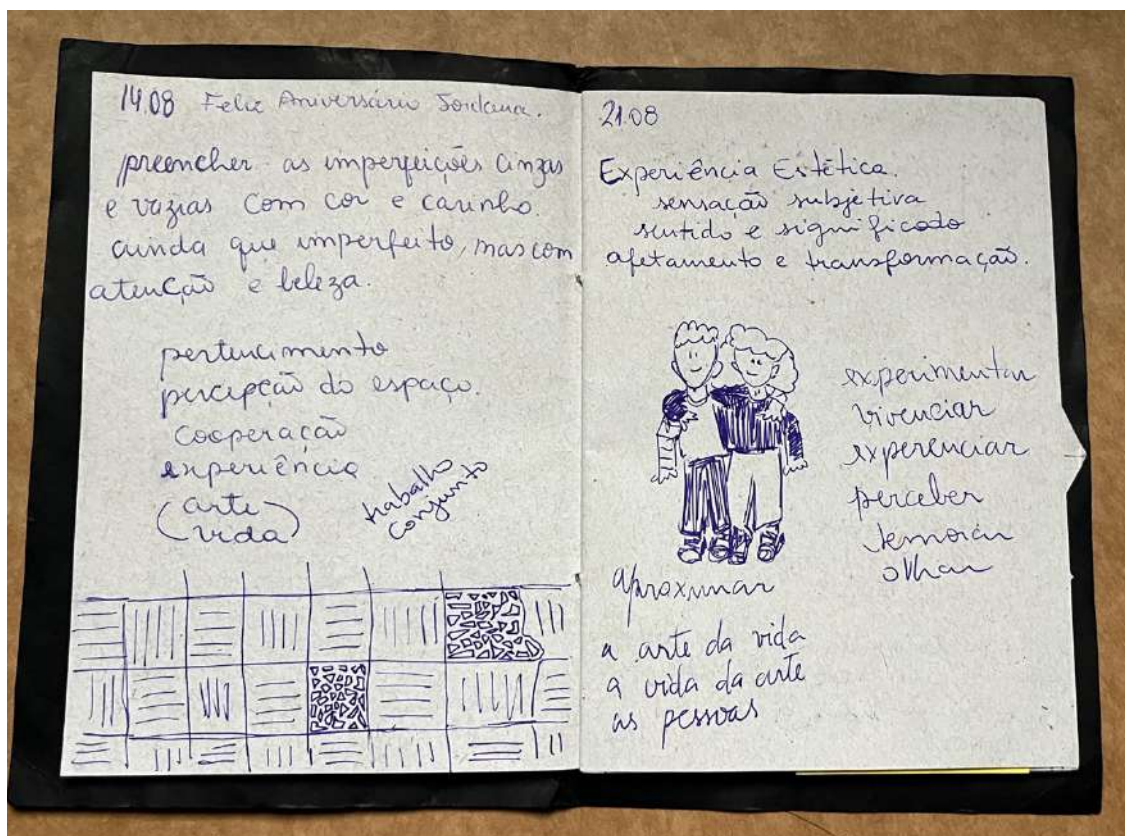 14.08 Feliz Aniversário Jordana.
preencher as imperfeições cinzas
e vazias com cor e carinho.
ainda que imperfeito, mas com
atenção e beleza.
pertencimento
percepção do espaço.
cooperação
experiência
(arte
vida)
trabalho
conjunto
21.08
Experiência Estética.
sensação subjetiva
sentido e significado
afetamento e transformação.
experimentar
vivenciar
experenciar
perceber
olhar
aproximar
a arte da vida
a vida da arte
as pessoas